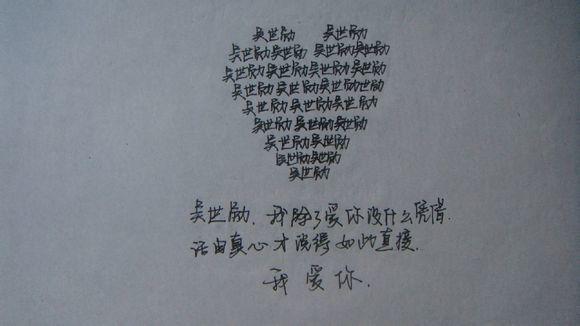 吴世勋 吴世勋
吴世勋吴世勋 吴世勋吴世勋
吴世勋吴世勋吴世勋吴世勋
吴世勋吴世勋吴世勋世勋
吴世勋吴世勋吴世勋
吴世勋吴世勋吴世勋
吴世勋吴世勋
吴世勋吴世勋
吴世勋
吴世勋，我除了爱你没什么凭借.
话由真心才说得如此直接.
我爱你.